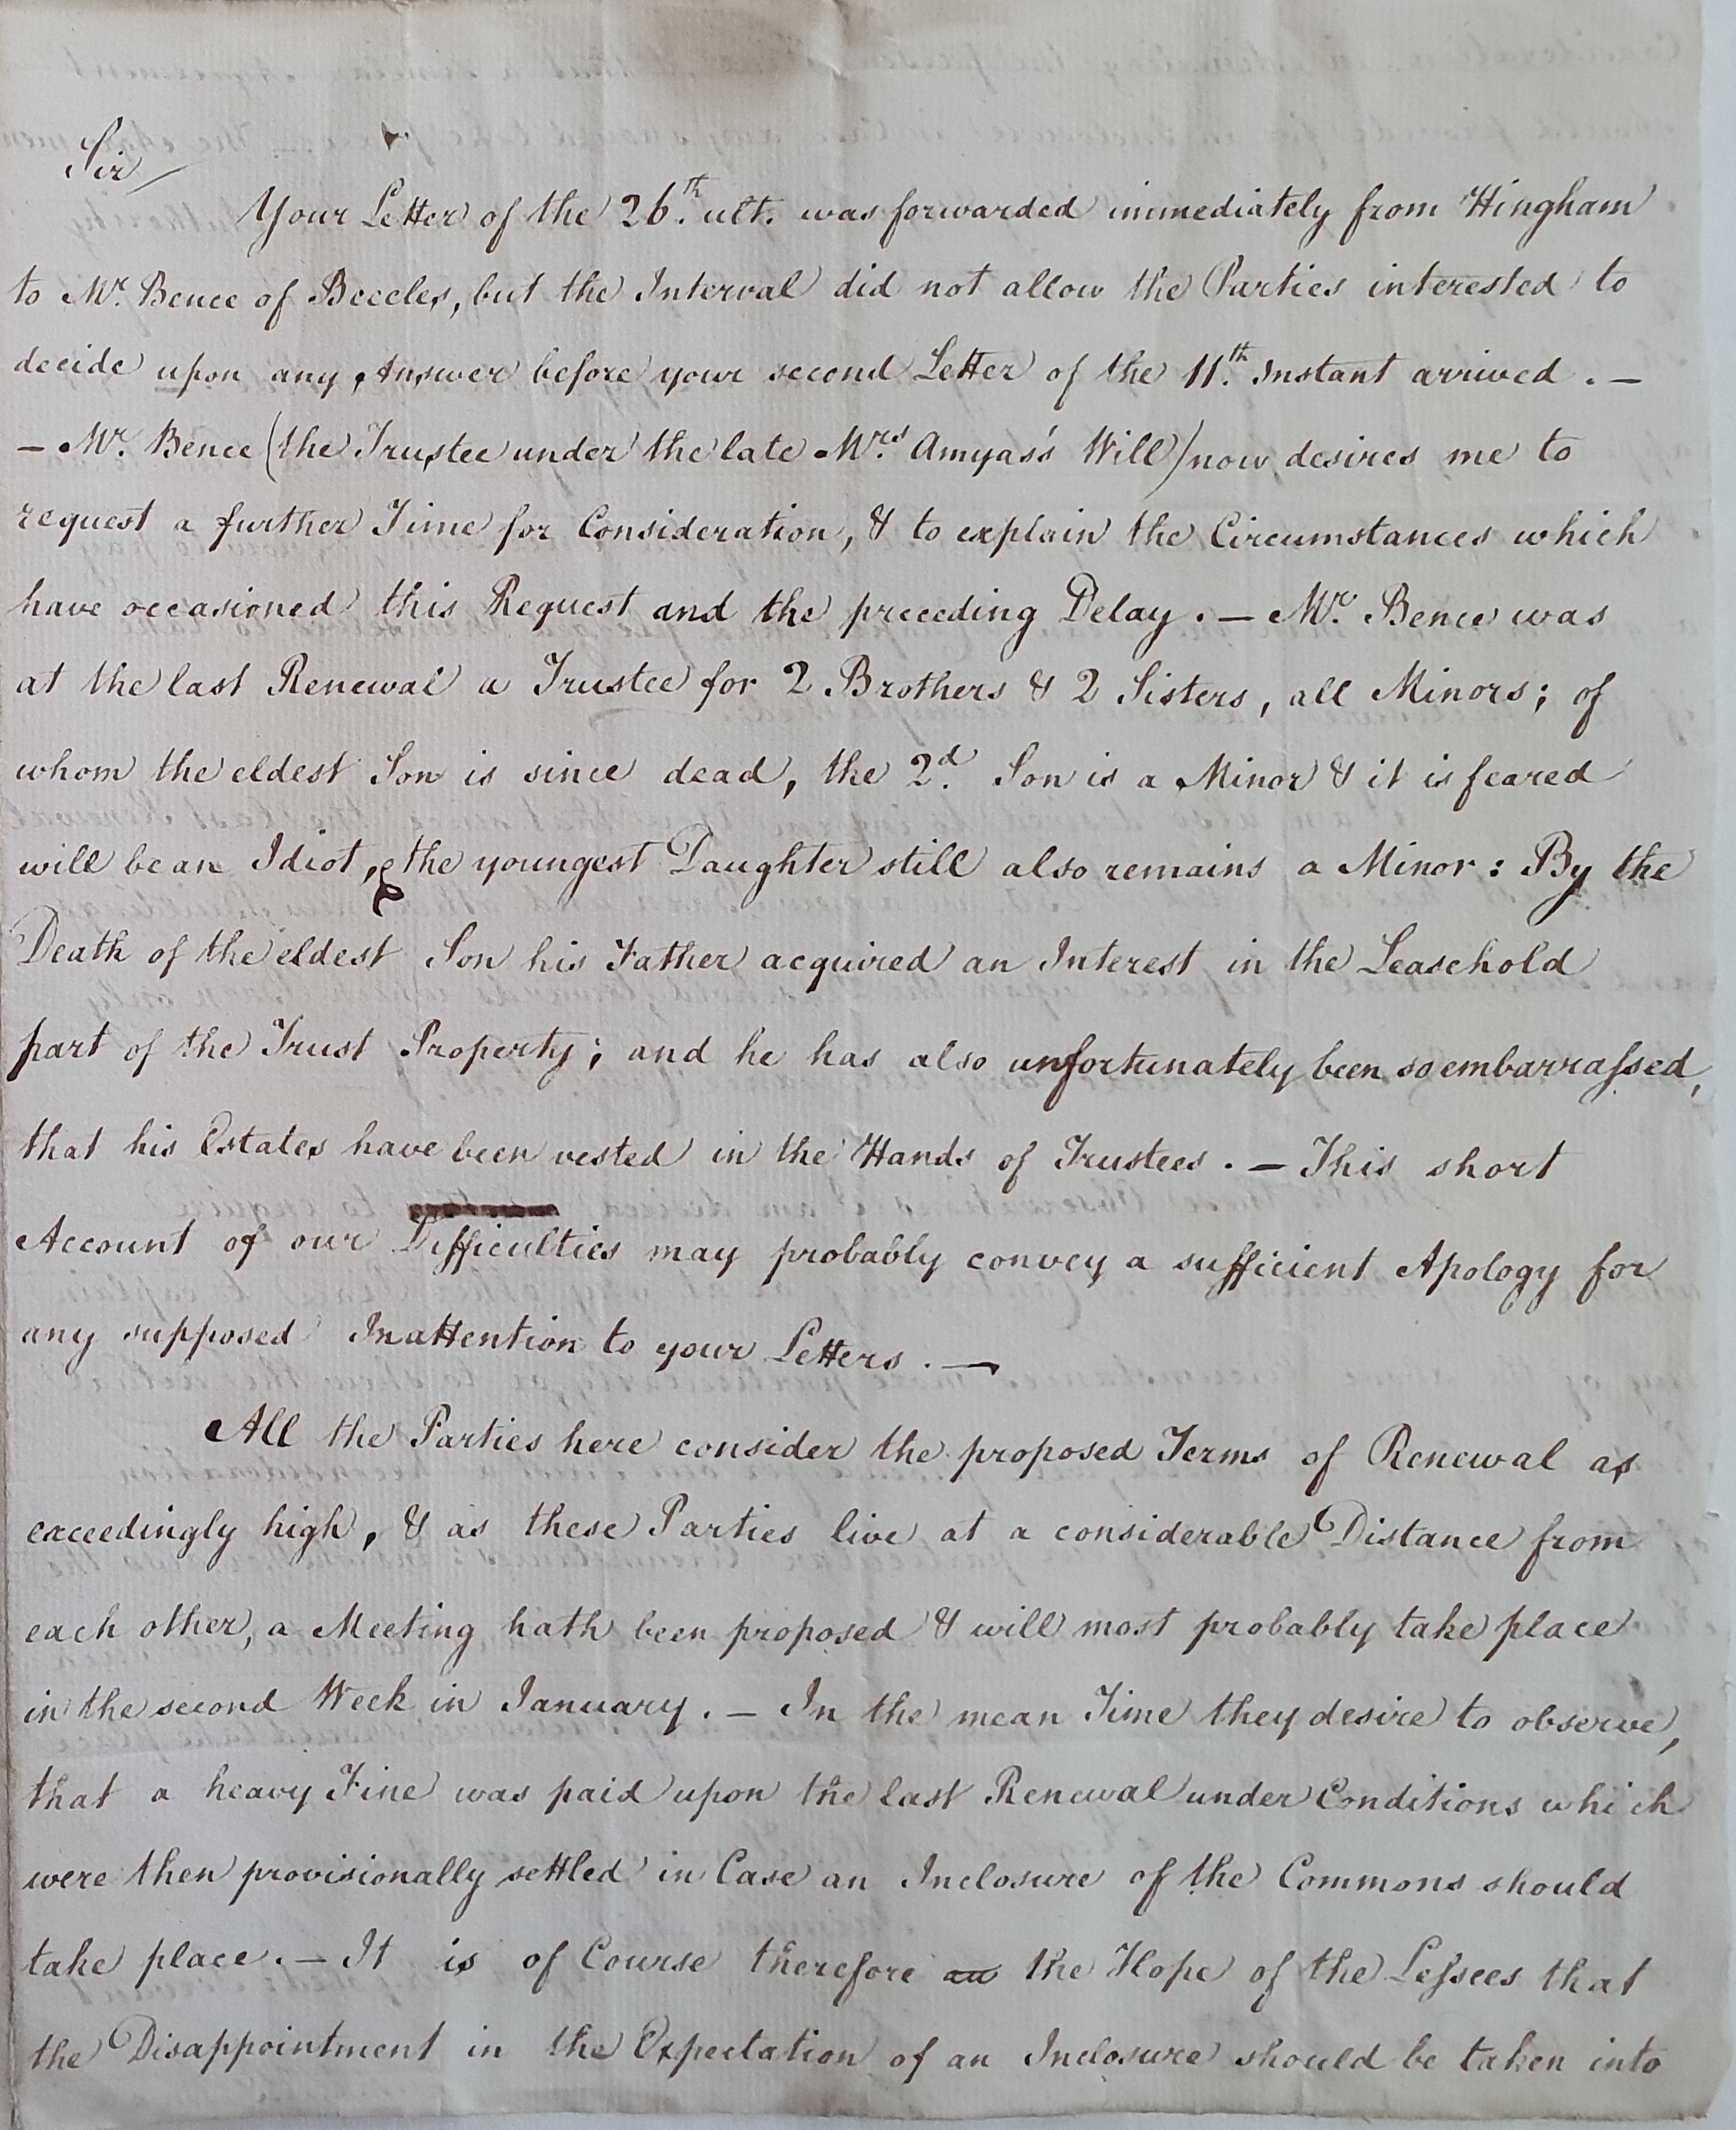 Sir/
Your Letter of the 26.th ult. was forwarded immediately from Hingham
to Mr. Bence of Beccles, but the Interval did not allow the Parties interested to
decide upon any Answer before your second Letter of the 11.th Instant arrived. —
— Mr. Bence (the Trustee under the late Mrs. Amyas's Will) now desires me to
request a further Time for Consideration, & to explain the Circumstances which
have occasioned this Request and the preceding Delay. — Mr. Bence was
at the last Renewal a Trustee for 2 Brothers & 2 Sisters, all Minors; of
whom the eldest Son is since dead, the 2.d Son is a Minor & it is feared
will be an Idiot, & the youngest Daughter still also remains a Minor: By the
Death of the eldest Son his Father acquired an Interest in the Leasehold
part of the Trust Property; and he has also unfortunately been so embarraſsed,
that his Estates have been vested in the Hands of Trustees. — This short
Account of our Difficulties may probably convey a sufficient Apology for
any supposed Inattention to your Letters. —
All the Parties here consider the proposed Terms of Renewal as
exceedingly high, & as these Parties live at a considerable Distance from
each other, a Meeting hath been proposed & will most probably take place
in the second Week in January. — In the mean Time they desire to observe,
that a heavy Fine was paid upon the last Renewal under Conditions which
were then provisionally settled in Case an Inclosure of the Commons should
take place. — It is of Course therefore an the Hope of the Leſsees that
the Disappointment in the Expectation of an Inclosure should be taken into